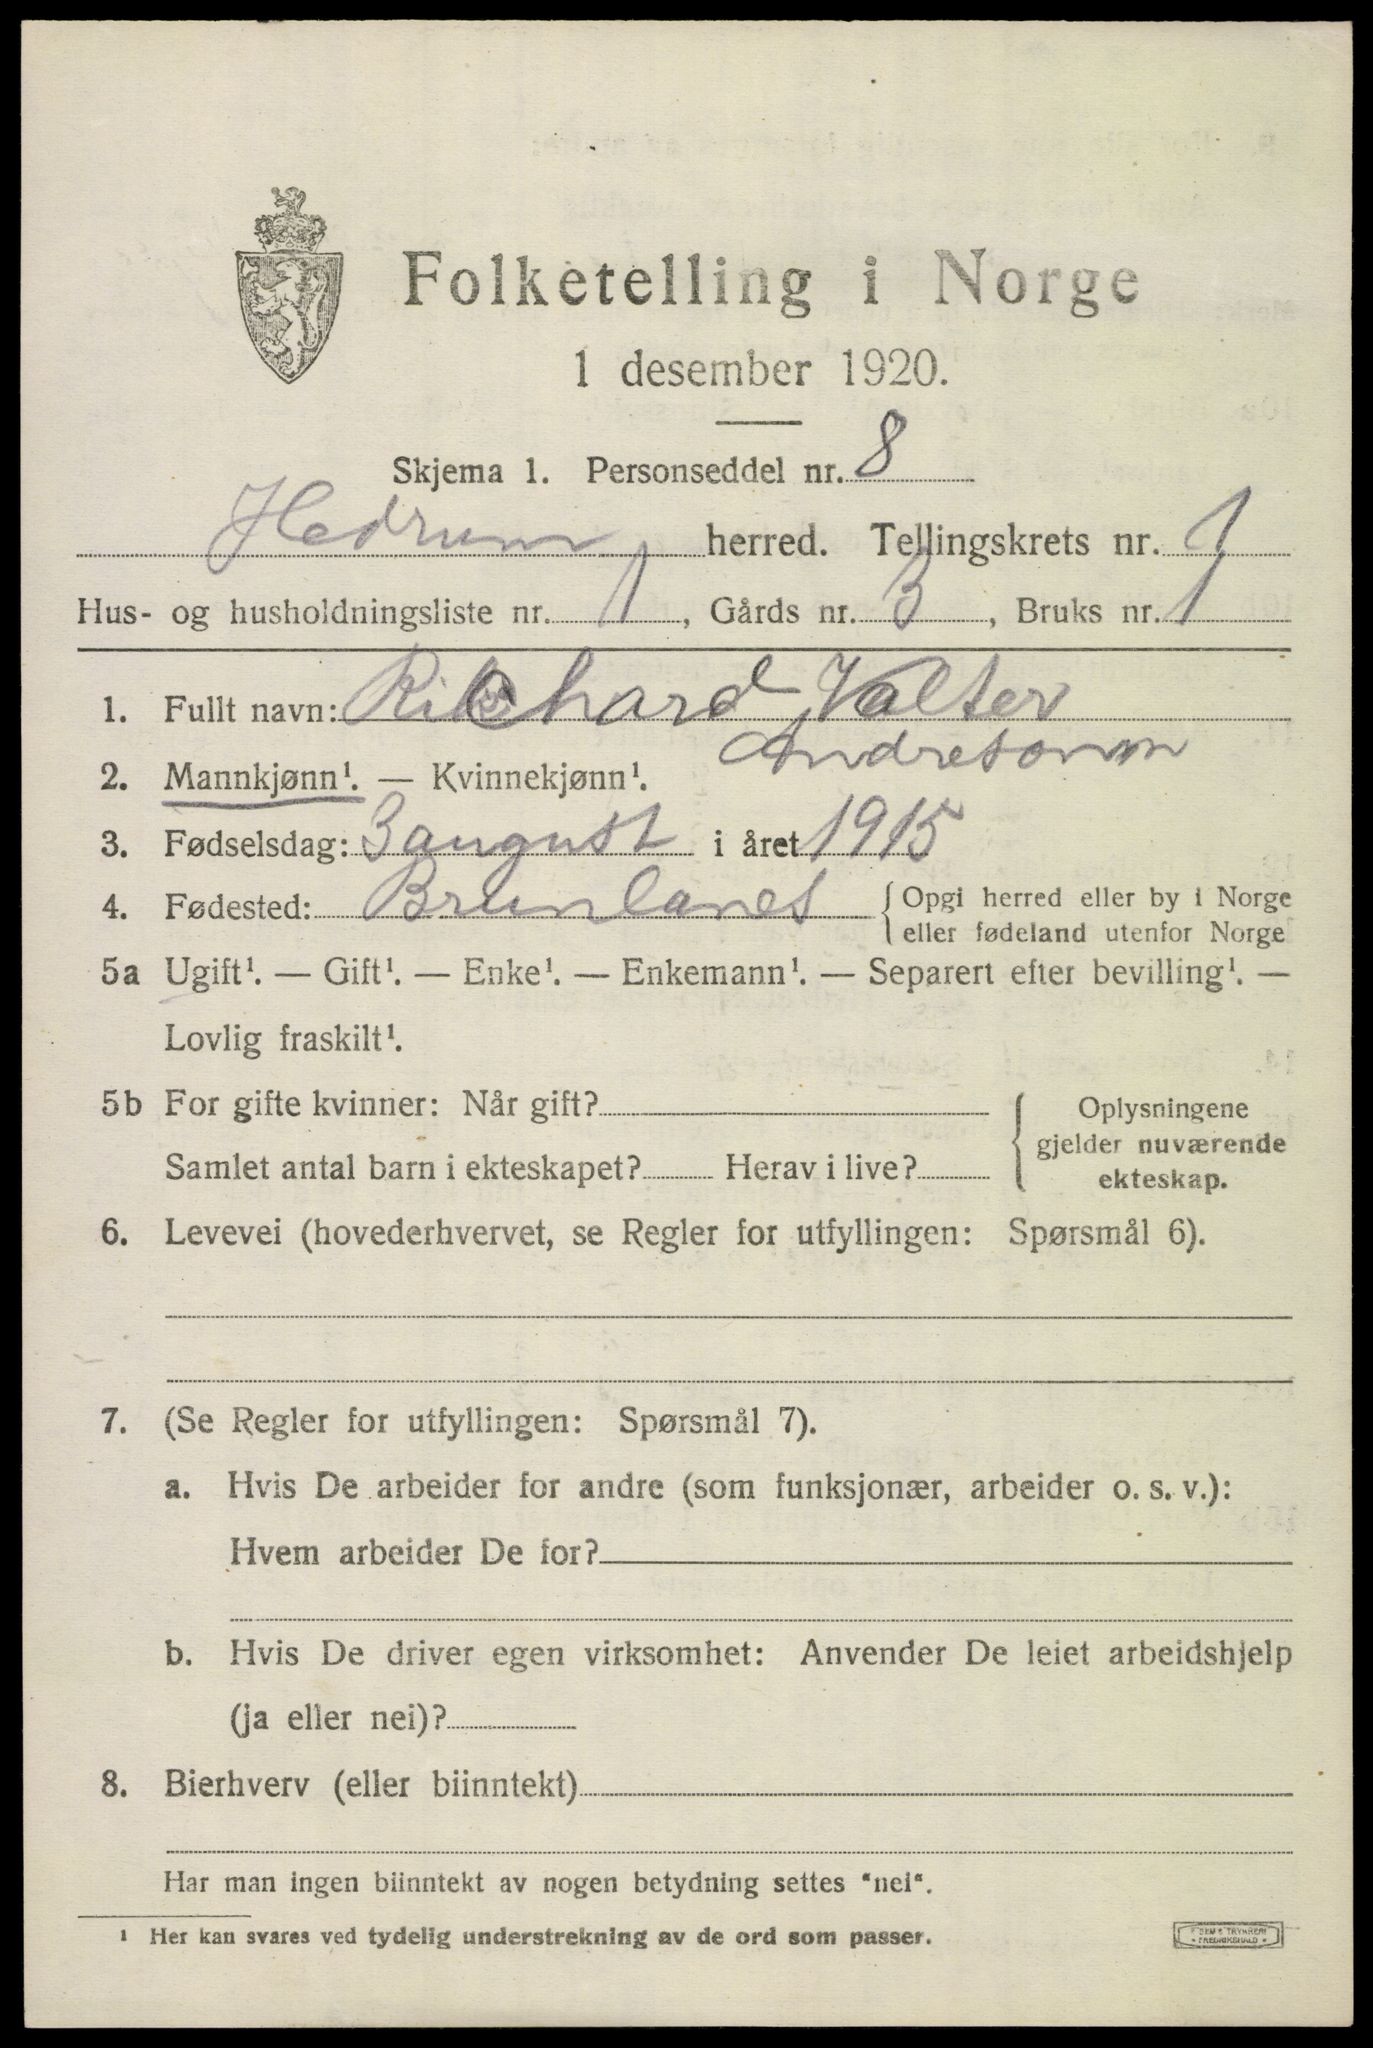 Folketelling i Norge
1 desember 1920.
Skjema 1. Personseddel nr. 8
Hedrum herred. Tellingskrets nr. 1
Hus- og husholdningsliste nr. 1, Gårds nr. 3, Bruks nr. 1
1. Fullt navn: Richard Valter
Andresonn
2. Mannkjønn¹. — Kvinnekjønn¹.
3. Fødselsdag: 3 august i året 1915
4. Fødested: Brunlanes { Opgi herred eller by i Norge
eller fødeland utenfor Norge
5a Ugift¹. — Gift¹. — Enke¹. — Enkemann¹. — Separert efter bevilling¹. —
Lovlig fraskilt¹.
5b For gifte kvinner: Når gift?
Samlet antal barn i ekteskapet? Herav i live?
{ Oplysningene
gjelder nuværende
ekteskap.
6. Levevei (hovederhvervet, se Regler for utfyllingen: Spørsmål 6).
7. (Se Regler for utfyllingen: Spørsmål 7).
a. Hvis De arbeider for andre (som funksjonær, arbeider o. s. v.):
Hvem arbeider De for?
b. Hvis De driver egen virksomhet: Anvender De leiet arbeidshjelp
(ja eller nei)?
8. Bierhverv (eller biinntekt)
Har man ingen biinntekt av nogen betydning settes "nei".
¹ Her kan svares ved tydelig understrekning av de ord som passer.
TRYKKERI
FREDRIKSHALD